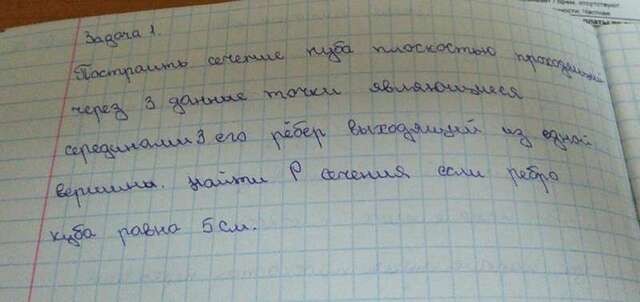 Задача 1.
Построить сечение куба плоскостью проходящий
через 3 данные точки являющиеся
серединами 3 его рёбер выходящий из одной
вершины. Найти P сечения если ребро
куба равна 5 см.